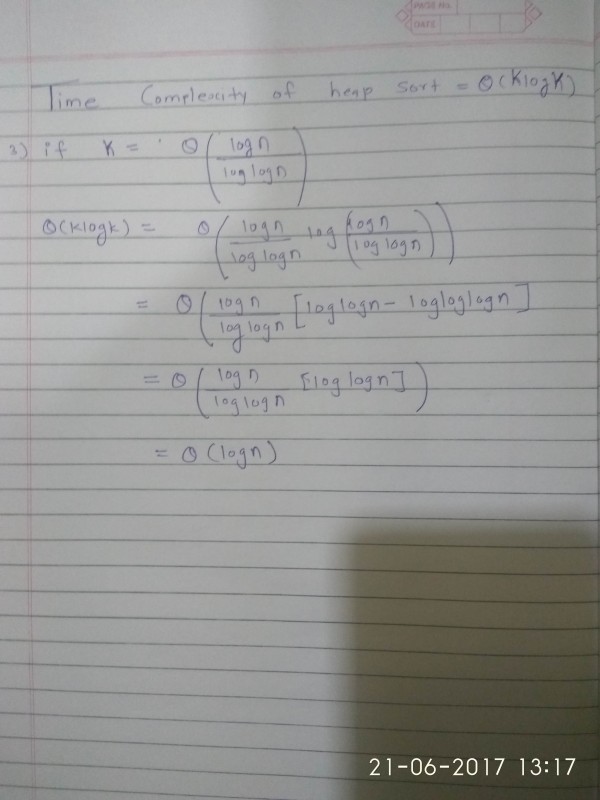 PAGE NO.
DATE
Time Complexity of heap sort = Θ(KlogK)
3) if K = Θ(logn / loglogn)
Θ(klogk) = Θ(logn / loglogn log(logn / loglogn))
= Θ(logn / loglogn [loglogn - logloglogn])
= Θ(logn / loglogn [loglogn])
= Θ(logn)
21-06-2017 13:17